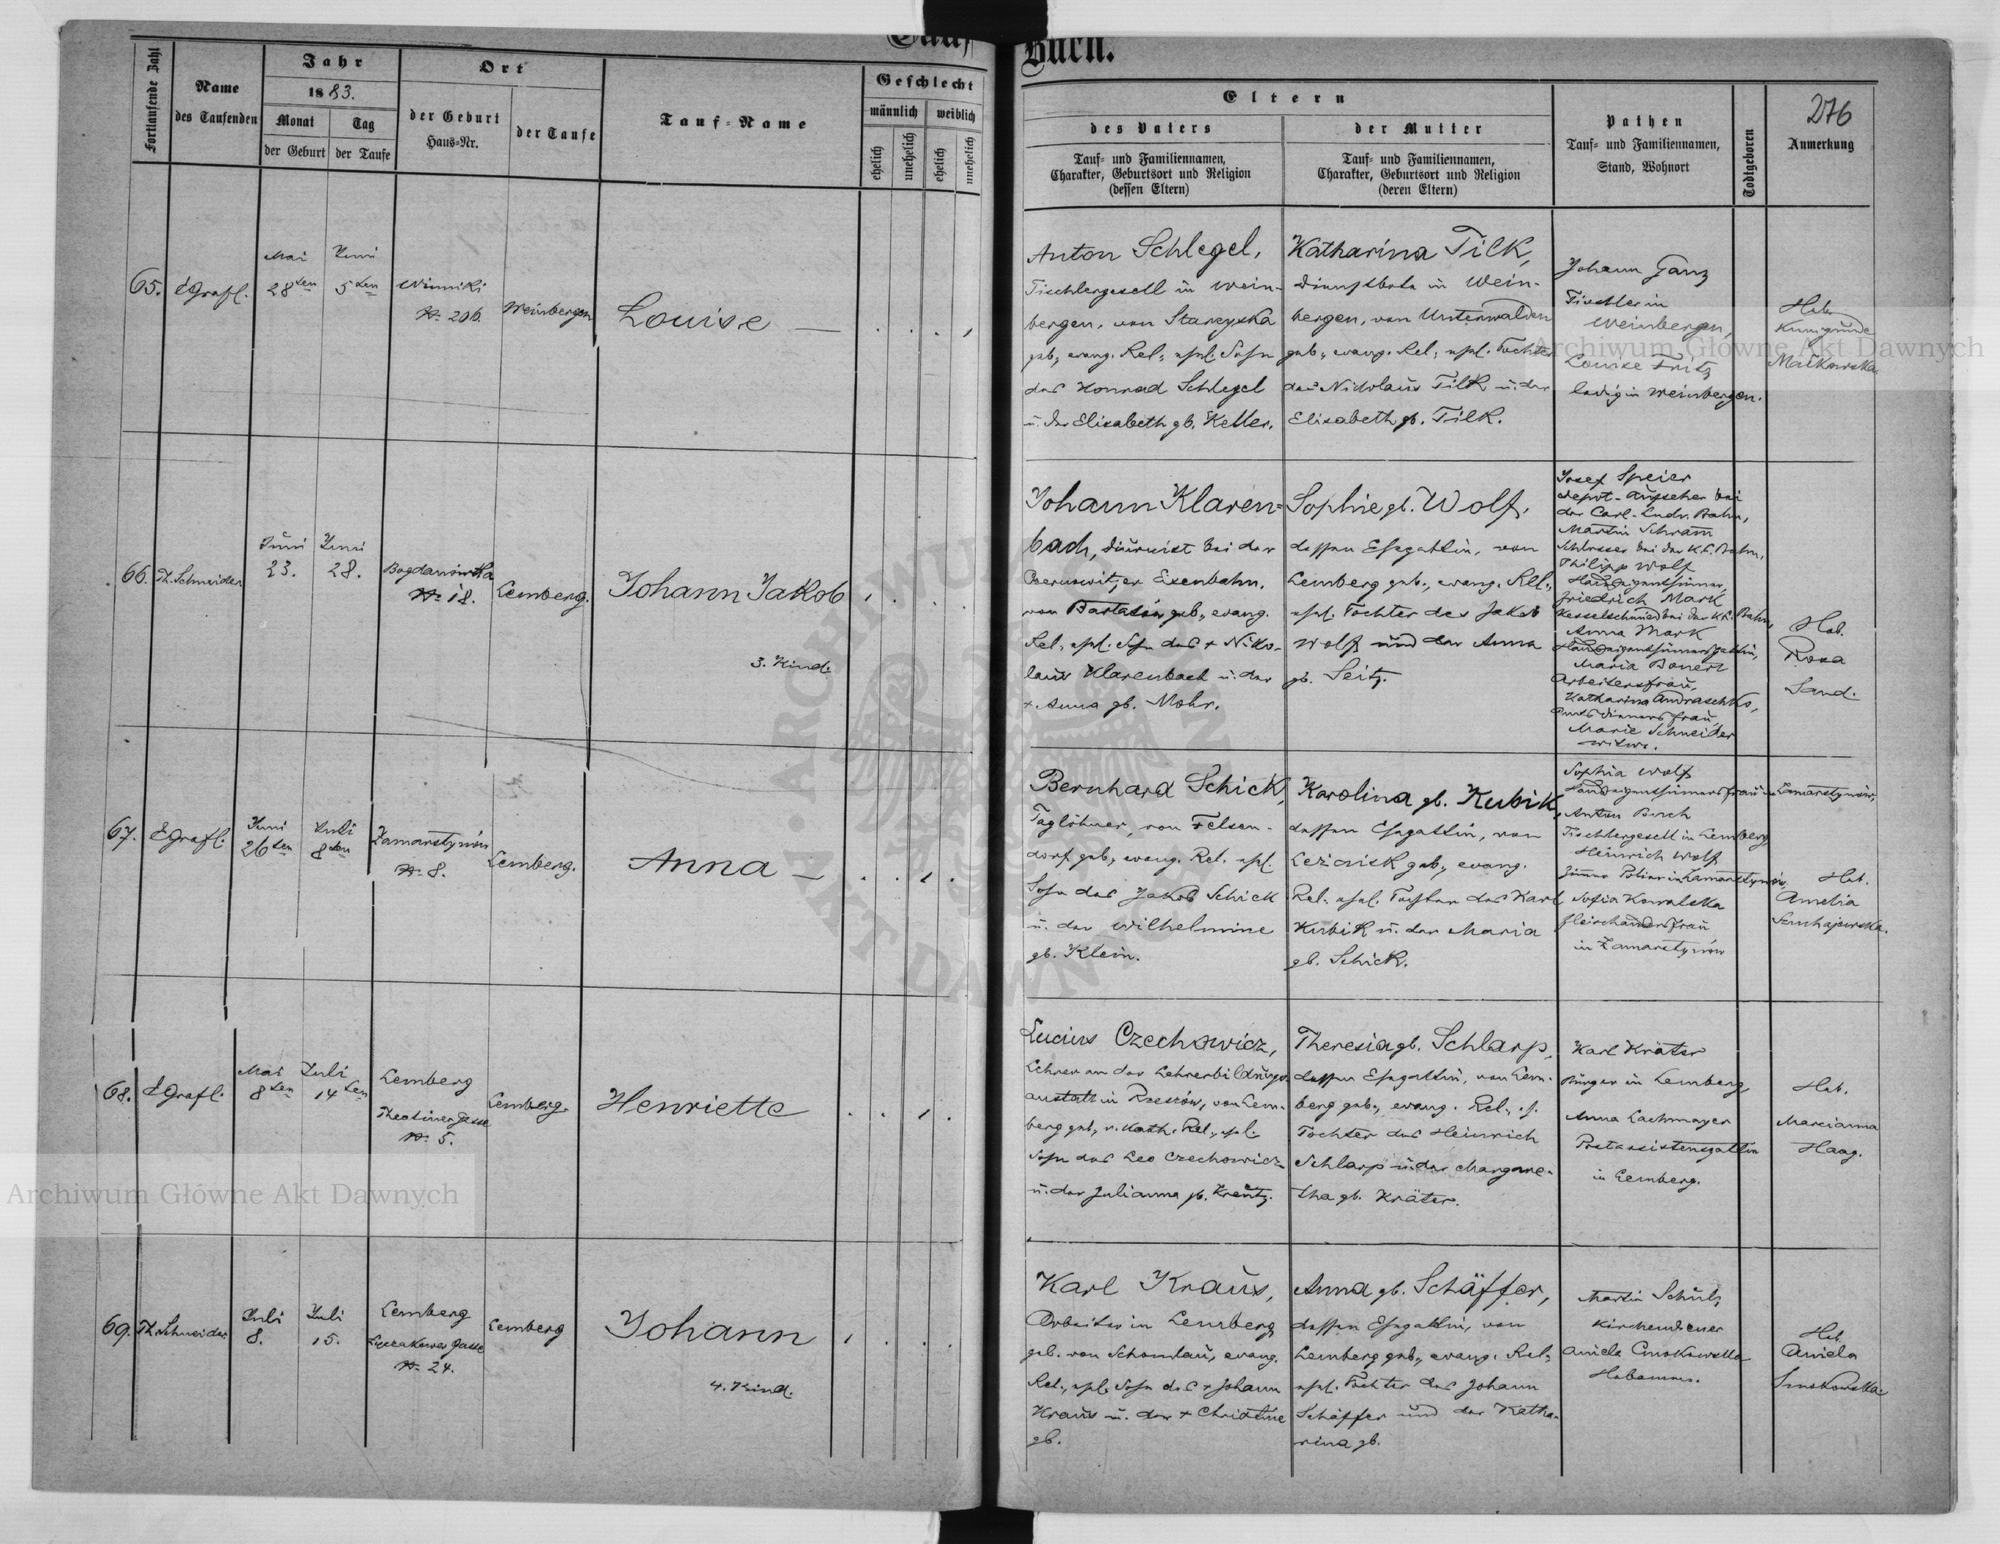 Tauf
Buch.
276
Fortlaufende Zahl
Name
des Taufenden
Jahr
1883.
Monat
Tag
der Geburt
der Taufe
Ort
der Geburt
Haus-Nr.
der Taufe
Tauf-Name
Geschlecht
männlich
weiblich
ehelich
unehelich
ehelich
unehelich
Eltern
des Vaters
Tauf- und Familiennamen,
Charakter, Geburtsort und Religion
(dessen Eltern)
der Mutter
Tauf- und Familiennamen,
Charakter, Geburtsort und Religion
(deren Eltern)
Pathen
Tauf- und Familiennamen,
Stand, Wohnort
Todtgeboren
Anmerkung
65.
Mai
28ten
Juni
5ten
Winniki
Nr. 206.
Weinbergen
Louise —
Anton Schlegel,
Tischlergesell in Wein-
bergen, von Starzyska
geb., evang. Rel., ehel. Sohn
des Konrad Schlegel
u. der Elisabeth gb. Keller.
Katharina Tilk,
Dienstbote in Wein-
bergen, von Unterwalden
geb., evang. Rel., ehel. Tochter
des Nikolaus Tilk u. der
Elisabeth gb. Tilk.
Johann Ganz
Tischler in
Weinbergen,
Louise Fritz
ledig in Weinbergen.
Heb.
Kunigunde
Malkowska
66.
Th. Schneider
Juni
23.
Juni
28.
Bogdanówka
Nr. 18.
Lemberg.
Johann Jakob
3. Kind.
Johann Klaren-
bach, Diurnist bei der
Czernowitzer Eisenbahn,
von Bartatów geb., evang.
Rel., ehel. Sohn des + Niko-
laus Klarenbach u. der
+ Anna gb. Mohr.
Sophie gb. Wolf,
dessen Ehegattin, von
Lemberg geb., evang. Rel.,
ehel. Tochter des Jakob
Wolf und der Anna
gb. Seitz.
Josef Speier
Depot-Aufseher bei
der Carl-Ludw. Bahn,
Martin Schramm
Schlosser bei der K.L. Bahn,
Philipp Wolf
Hauseigenthümer,
Friedrich Mark
Kesselschmied bei der K.L. Bahn,
Anna Mark
Hauseigenthümersgattin,
Maria Bonert
Arbeitersfrau,
Katharina Andraschko,
Amtsdienersfrau,
Marie Schneider
Witwe.
Heb.
Rosa
Sand.
67.
Juni
26ten
Juli
8ten
Zamarstynów
Nr. 8.
Lemberg.
Anna —
Bernhard Schick,
Taglöhner, von Felsen-
dorf geb., evang. Rel. ehel.
Sohn des Jakob Schick
u. der Wilhelmine
gb. Klein.
Karolina gb. Kubik,
dessen Ehegattin, von
Leżaisk geb., evang.
Rel. ehel. Tochter des Karl
Kubik u. der Maria
gb. Schick.
Sophia Wolf
Hauseigenthümersfrau in Zamarstynów,
Anton Buch
Tischlergesell in Lemberg,
Heinrich Wolf
Zimmer Polier in Zamarstynów,
Sofia Kowalska
Fleischauersfrau
in Zamarstynów
Heb.
Amelia
68.
Mai
8ten
Juli
14ten
Lemberg
Theatinergasse
Nr. 5.
Lemberg.
Henriette
Lucius Czechowicz,
Lehrer an der Lehrerbildungs-
anstalt in Rzeszów, von Lem-
berg geb., r. kath. Rel., ehel.
Sohn des Leo Czechowicz
u. der Julianna gb. Kreutz.
Theresia gb. Schlarp,
dessen Ehegattin, von Lem-
berg geb., evang. Rel., ehel.
Tochter des Heinrich
Schlarp u. der Margare-
tha gb. Kräter.
Karl Kräter
Bürger in Lemberg,
Anna Lachmayer
Postassistensgattin
in Lemberg.
Heb.
Marcianna
Haag.
69.
Th. Schneider
Juli
8.
Juli
15.
Lemberg
Łyczakower Gasse
Nr. 24.
Lemberg
Johann
4. Kind.
Karl Kraus,
Arbeiter in Lemberg
geb. von Schönthau, evang.
Rel., ehel. Sohn des + Johann
Kraus u. der + Christine
gb.
Anna gb. Schäffer,
dessen Ehegattin, von
Lemberg geb., evang. Rel.,
ehel. Tochter des Johann
Schäffer und der Katha-
rina gb.
Martin Schulz
Kirchendiener
Aniela Smokowska
Hebamme.
Heb.
Aniela
Smokowska
Archiwum Główne Akt Dawnych
Archiwum Główne Akt Dawnych
ARCHIWUM GŁÓWNE AKT DAWNYCH